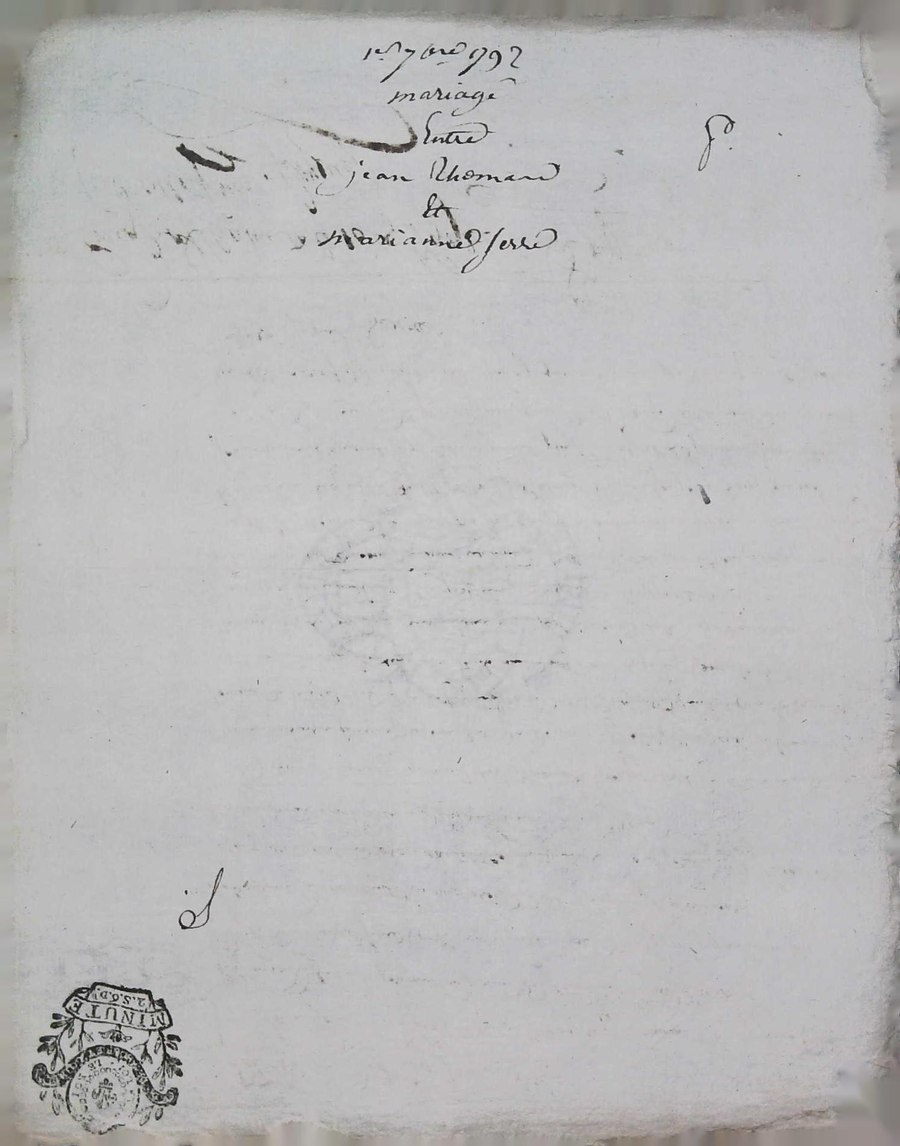 1er 7bre 1792
mariage
Entre
jean Thomard
Et
marianne Serre
MINUTE
2.S.6.Drs